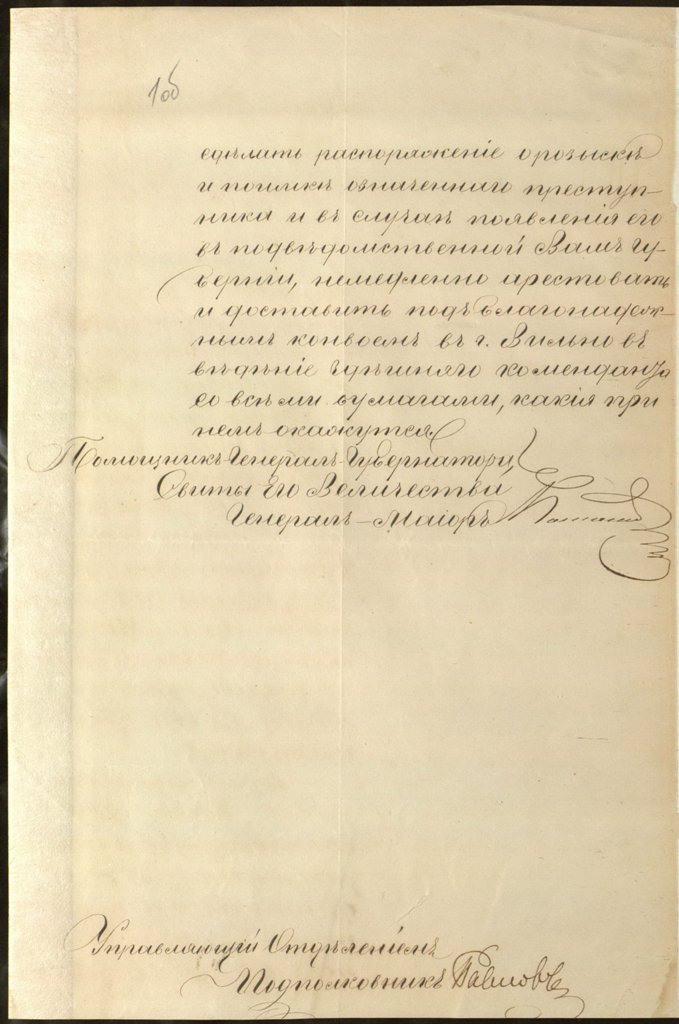 1об
сдѣлать распоряженіе о розыскѣ
и поимкѣ означеннаго преступ-
ника и въ случаѣ появленія его
въ подвѣдомственной Вамъ гу-
берніи, немедленно арестовать
и доставить подъ благонадеж-
нымъ конвоемъ въ г. Вильно въ
вѣдѣніе здѣшняго коменданта
со всѣми бумагами, какія при
немъ окажутся.
Помощникъ Генералъ-Губернатора,
Свиты Его Величества
Генералъ-Маіоръ
Управляющій Отдѣленіемъ
Подполковникъ Павловъ